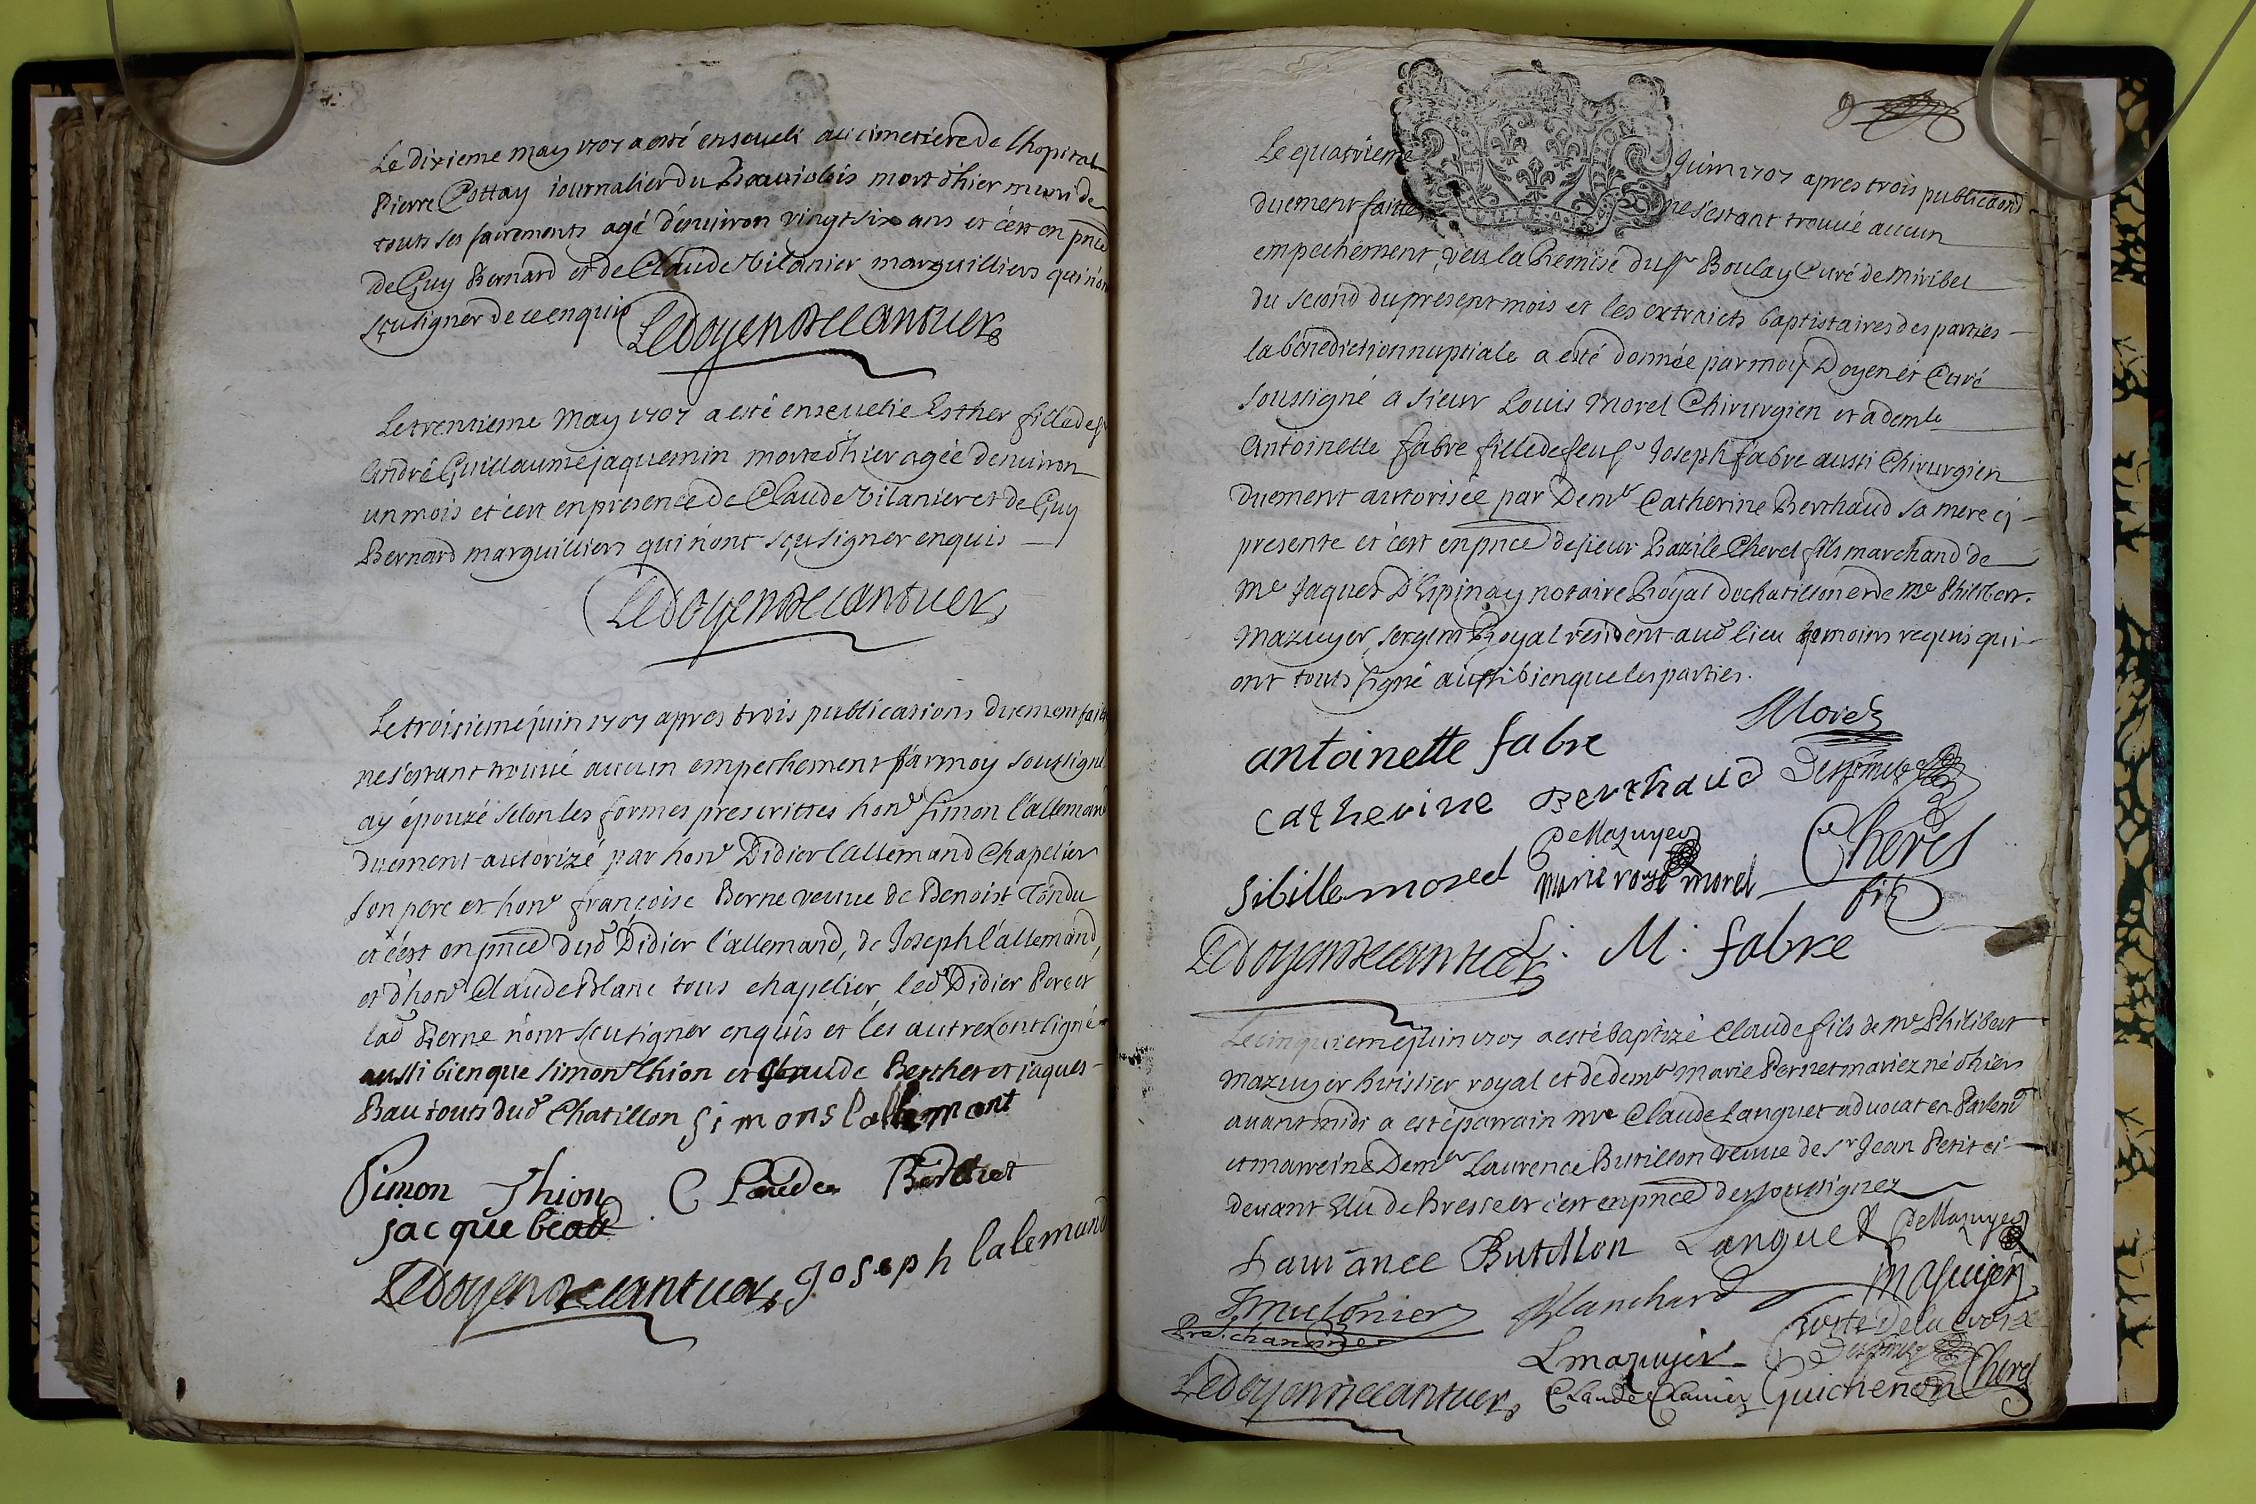 Le dixieme may 1707 a esté enseveli au cimetiere de lhopital
Pierre Cottay iournalier du Beauiolais mort d'hier muni de
touts ses sacrements agé d'enuiron vingt six ans et c'est en pnce
de Guy Bernard et de Claude Vilanier marguilliers qui n'on
sçu signer de ce enquis Le doyen Decantuer
Le trentieme May 1707 a esté enseuelie Esther fille de sr
André Guillaume jaquemin morte d'hier agée denuiron
un mois et c'est en presence de Claude Vilanier et de Guy
Bernard marguilliers qui n'ont sçu signer enquis
Le doyen Decantuer
Le troisieme juin 1707 apres trois publications duement faites
ne s'estant trouué aucun empechement par moy soussigné
ay épouzé selon les formes prescrittes hone Simon l'allemand
duement autorizé par hone Didier l'allemand Chapelier
son pere et hone françoise Berne veuue de Benoist Tondu
et c'est en pnce dud Didier l'allemand, de Joseph l'allemand,
et d'hone Claude Blanc tous chapelier, led Didier Pere et
lad Berne n'ont sçu signer enquis et les autres ont signé
aussi bien que simon Thion et Claude Berchet et jaques
Bau touts dud Chatillon simons lallemant
Simon Thion Claude Berchet
jacque beau
Le doyen Decantuer Joseph lalemand
Le quatrieme Juin 1707 apres trois publications
duement faittes ne s'estant trouué aucun
empechement, veu la Remise du sr Boulay Curé de Miribel
du second du present mois et les extraicts baptistaires des parties
la bénediction nuptiale a esté donnée par moy Doyen et Curé
soussigné a sieur Louis Morel Chirurgien et a demlle
Antoinette fabre fille de feu sr Joseph fabre aussi Chirurgien
duement autorisée par Demlle Catherine Berthaud sa mere cy
presente et c'est en pnce de sieur Bazile Cheret fils marchand de
Me Jaques D'Espinay notaire Royal du chatillon et de Me Philibert
Mazuyer, sergent Royal résident aud lieu temoins requis qui
ont touts signé aussi bien que les parties.
Morel
antoinette fabre
catherine Berthaud
DeMazuyer Cheret
sibille morel marie rose morel fils
Le doyen Decantuer M: fabre
Le cinquieme juin 1707 a esté baptizé Claude fils de me Philibert
Mazuyer huissier royal et de demlle Marie Pernet mariez né d'hier
auant midi a esté parrain Me Claude Languet advocat en Parlemt
et marreine Demlle Laurence Butillon veuue de sr Jean Petit ci
deuant Elu de Bresse et c'est en pnce des soussignez
Lauranee Butillon Languet DeMazuyer
Blanchard Masuyer
Pre. chanoine
Lmazuyer
Le doyen Decantuer Claude Guichenon Cheret